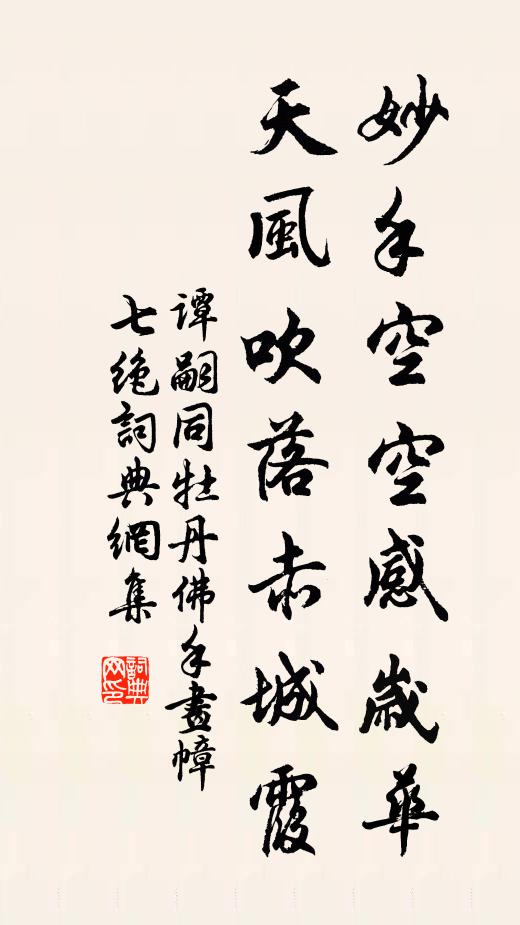 妙手空空感歲華
天風吹落赤城霞
谭嗣同牡丹佛手畫幛
七绝詞典網集
詞典网印